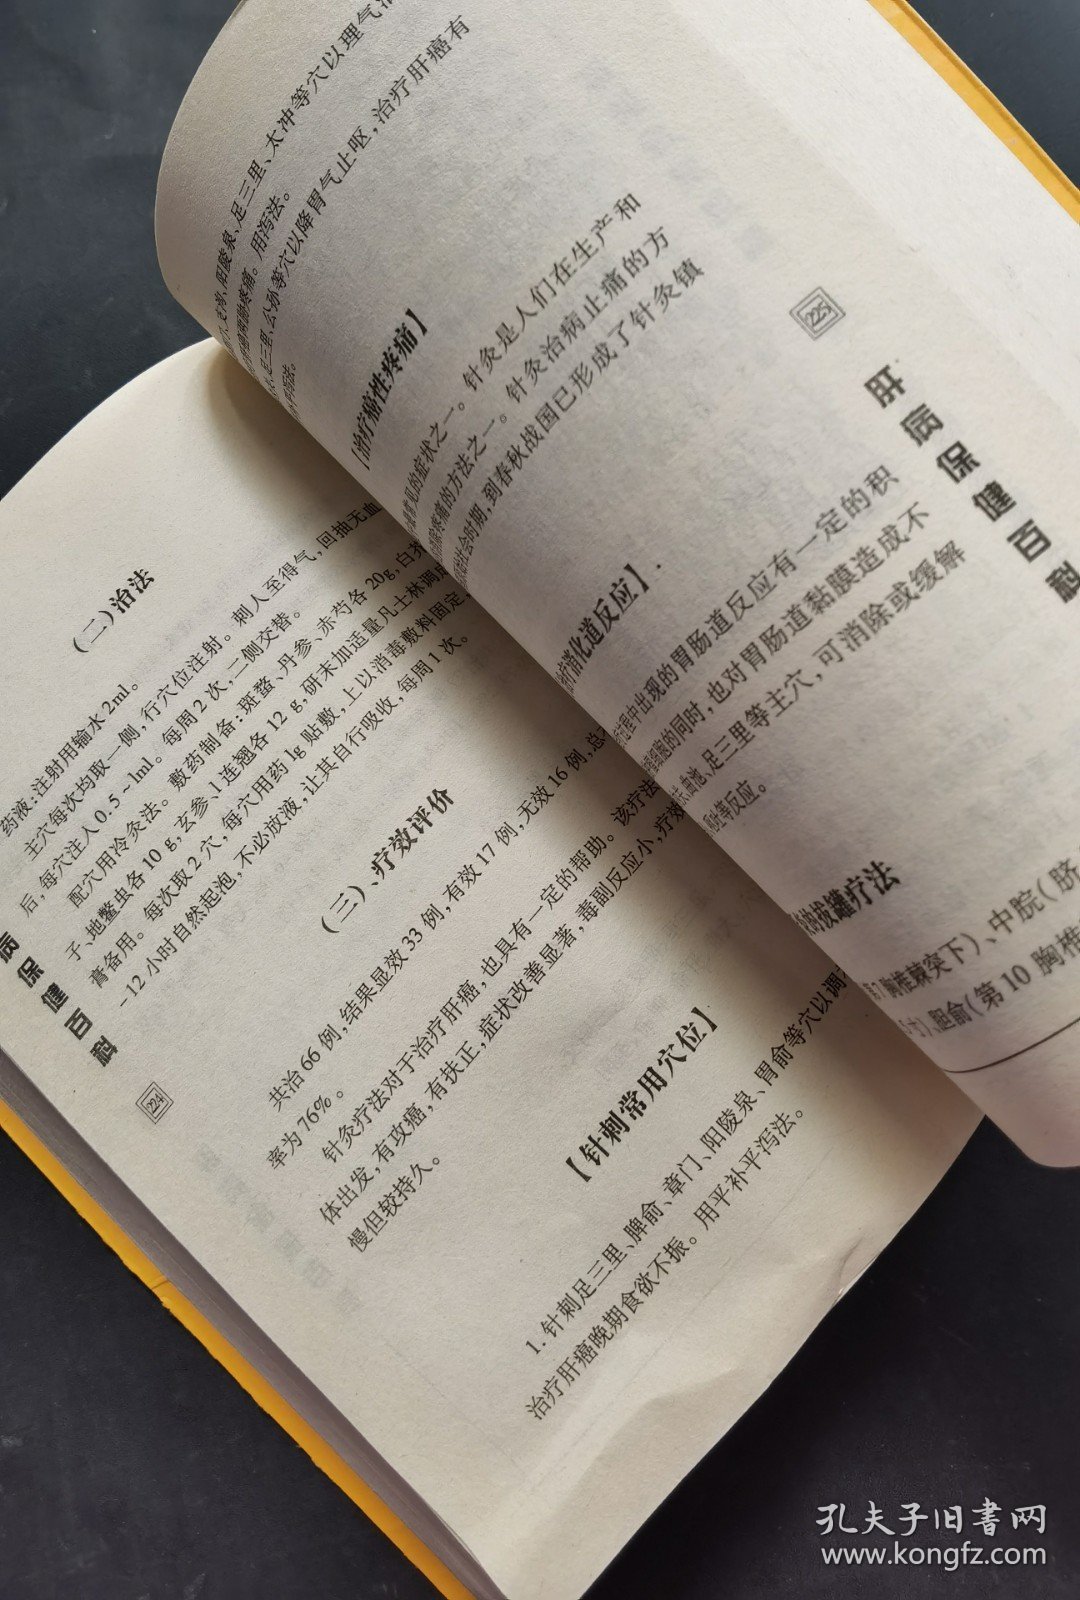 (二)治法
药液:注射用输水2ml。
主穴每次均取一侧,行穴位注射。刺人至得气,回抽无血
后,每穴注入0.5~1ml。每周2次,二侧交替。
配穴用冷灸法。敷药制备:斑蝥、丹参、赤芍各20g,白芥
子、地鳖虫各10g,玄参、l连翘各12g,研末加适量凡士林调
膏备用。每次取2穴,每穴用药1g贴敷,上以消毒敷料固定,
-12小时自然起泡,不必放液,让其自行吸收,每周1次。
(三)、疗效评价
共治66例,结果显效33例,有效17例,无效16例,总
率为76%。
针灸疗法对于治疗肝癌,也具有一定的帮助。该疗法
体出发,有攻癌,有扶正,症状改善显著,毒副反应小,疗效
慢但较持久。
【针刺常用穴位】
1.针刺足三里、脾俞、章门、阳陵泉、胃俞等穴以调
治疗肝癌晚期食欲不振。用平补平泻法。
病保健百科
224
阳陵泉、足三里、太冲等穴以理气
疼痛。用泻法。
足三里、公孙等穴以降胃气止呕,治疗肝癌有
泻法。
【治疗癌性疼痛】
常见的症状之一。针灸是人们在生产和
疼痛的方法之一。针灸治病止痛的方
社会时期,到春秋战国已形成了针灸镇
治疗消化道反应】
过程中出现的胃肠道反应有一定的积
癌细胞的同时,也对胃肠道黏膜造成不
曲池、足三里等主穴,可消除或缓解
呕吐等反应。
的拔罐疗法
第7胸椎棘突下)、中脘(脐
寸)、胆俞(第10胸椎
225
肝病保健百科
孔夫子旧书网
www.kongfz.com